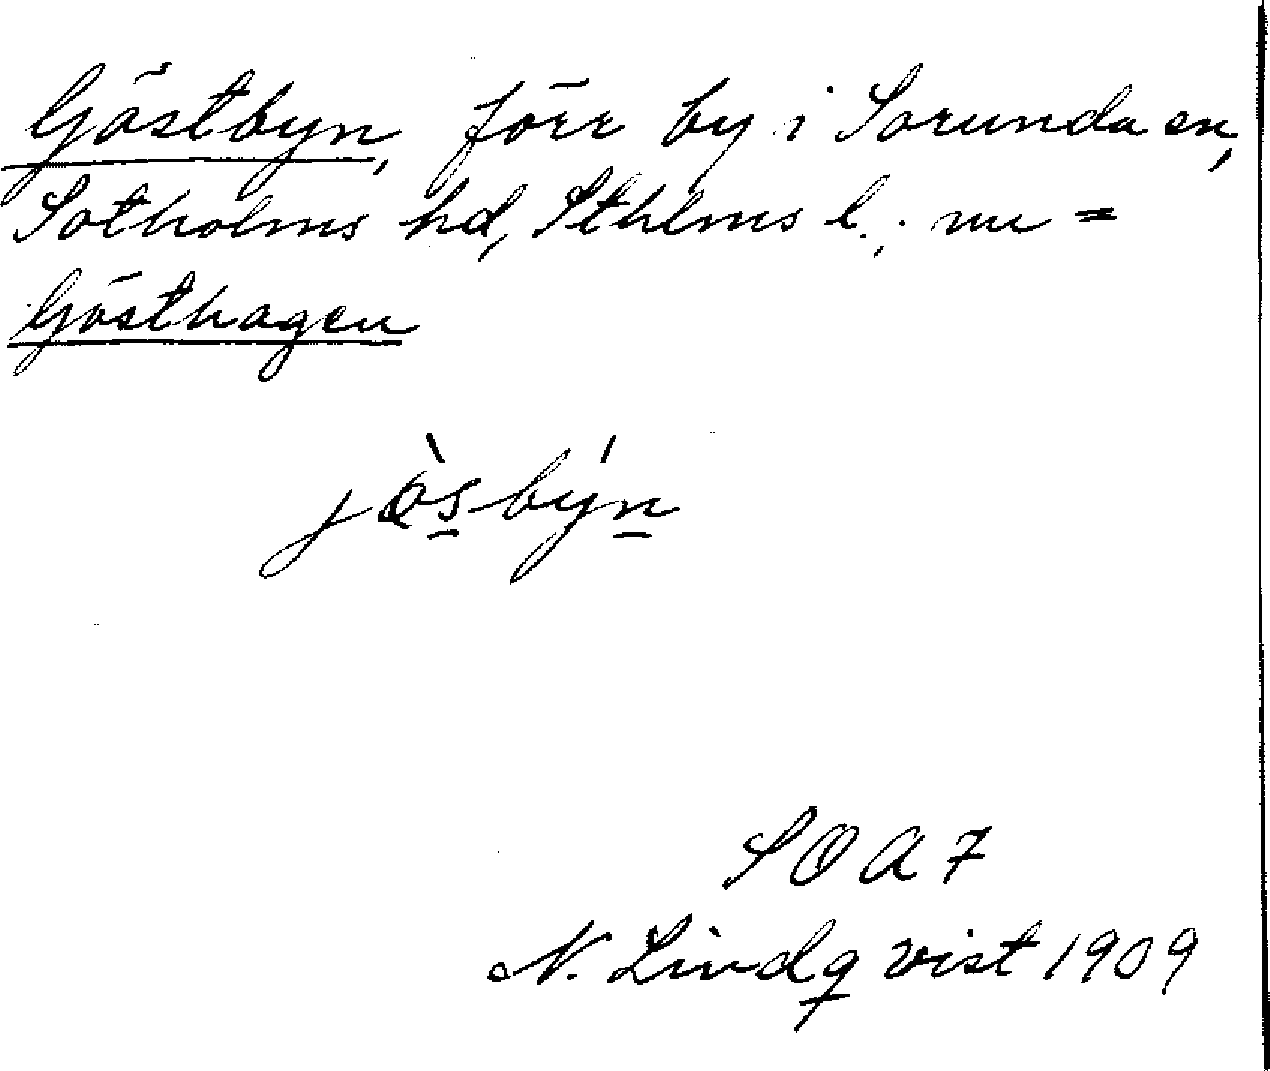 Göstbyn, förr by i Sorunda sn,
Sotholms hd, Sthlms l.; nu =
Gösthagen
jö̀sbýn
SOA 7
N. Lindqvist 1909